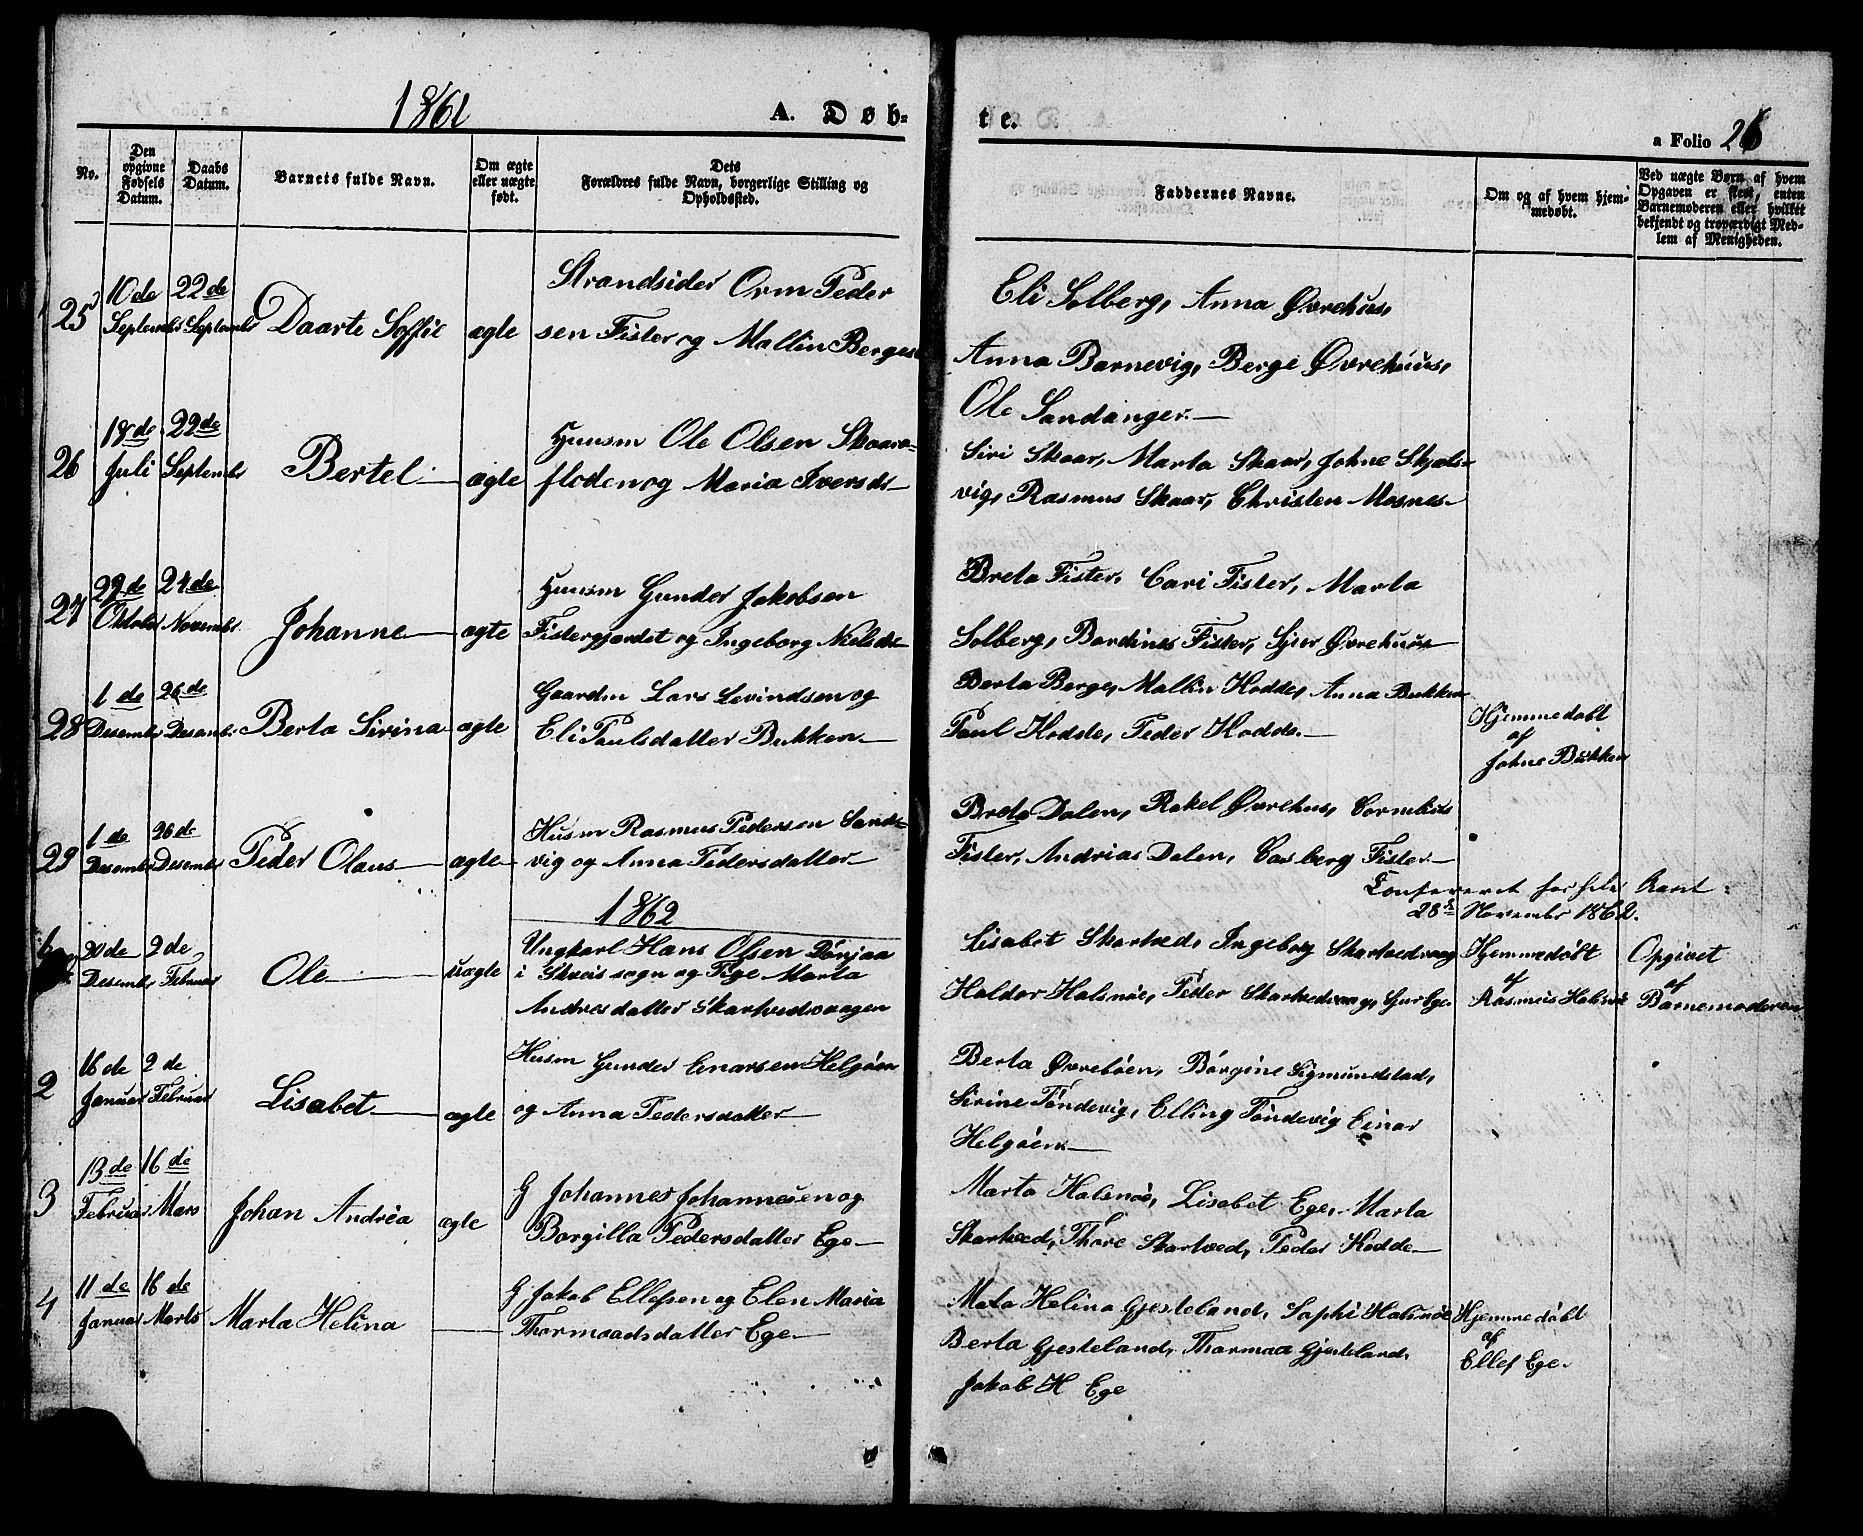 1861 A. Døb-
te.
a Folio 26
No.
Den opgivne Fødsels Datum.
Daabs Datum.
Barnets fulde Navn.
Om ægte eller uægte født.
Dets Forældres fulde Navn, borgerlige Stilling og Opholdssted.
Faddernes Navne.
Om og af hvem hjemmedøbt.
Ved uægte Børn af hvem Opgaven er skeet, enten Barnemoderen eller hvilket bekjendt og troværdigt Medlem af Menigheden.
25 10de Septembr 22de Septembr Daarte Soffie ægte
Strandsider Orm Peder
sen Fister og Mallin Berges
Eli Solberg, Anna Øvrehus,
Anna Barnevig, Berge Øvrehuus,
Ole Sandanger.
26 18de Juli 22de Septembr Bertel ægte
Huusm Ole Olsen Skaara-
floden og Maria Iversdr
Siri Skaar, Marta Skaar, Johne Skjols-
vig, Rasmus Skaar, Christen Mosnes
27 22de Oktober 24de Novembr Johanne ægte
Huusm Gunder Jakobsen
Fistergjerdet og Ingeborg Nielsdr
Breta Fister, Cari Fister, Marta
Solberg, Bardines Fister, Sjur Øvrehuus
28 1de Desember 26de Desembr Berta Sirina ægte
Gaardm Lars Levindsen og
Eli Paulsdatter Bukken
Berta Berge, Mallin Hodde, Anna Bukken
Paul Hodde, Peder Hodde.
Hjemmedøbt
af
Johne Bukken
29 1de Desembr 26de Desembr Peder Olaus ægte
Husm Rasmus Pedersen Sands-
vig og Anna Pedersdatter
Breta Dalen, Rakel Øvrehus, Cornelius
Fister, Andrias Dalen, Carlberg Fister
28de Novembr 1862.
1862
20de Desembr 2de Februar Ole uægte
Ungkarl Hans Olsen
i sogn og Pige Marta
Andresdatter Skartvedvaagen
Lisabet Skartved, Ingeborg Skartvedvaag
Haldor Halsnøe, Peder Skartvedvaag, Ege
Hjemmedøbt
af
Rasmus Halsnøe
Opgivet
af
Barnemoderen
2 16de Januar 2de Februar Lisabet ægte
Husm Gunder Enarsen Helgøen
og Anna Pedersdatter
Berta Øvrebøen, Børgine Sigmundstad,
Sirine Tøndevig, Elling Tøndevig Einar
Helgøen
3 13de Februar 16de Mars Johan Andrea ægte
G Johannes Johannesen og
Borgilla Pedersdatter Ege
Marta Halsnøe, Lisabet Ege, Marta
Skartved, Thore Skartved, Peder Hodde
4 11de Januar 16de Marts Marta Helina
G Jakob Ellefsen og Elen Maria
Thormaadsdatter Ege
Meta Helina Gjesteland, Sophi Halsnøe
Berta Gjesteland, Thormaa Gjesteland,
Jakob H Ege
Hjemmedøbt
af
Ellef Ege.